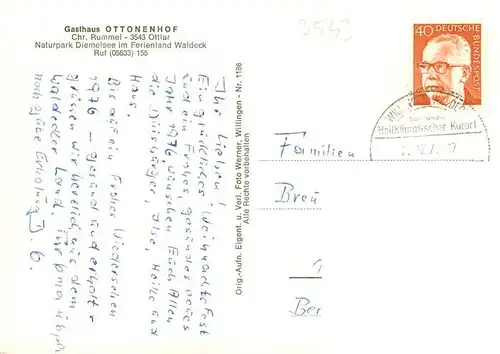 Gasthaus OTTONENHOF
Chr. Rummel - 3543 Ottlar
Naturpark Diemelsee im Ferienland Waldeck
Ruf (05633) 155
3543
40
DEUTSCHE
BUNDESPOST
Heilklimatischer Kurort
Ihr Lieben!
Ein glückliches Weihnachtsfest
und ein frohes, gesundes neues
Jahr 1976, wünschen Euch Allen
die Ilse, Heike und
Haus.
Bis auf ein frohes Wiedersehen
1976 - gesund und erholt -
grüßen wir herzlich aus dem
Waldecker Land.
noch gute Erholung
Orig.-Aufn. Eigent. u. Verl. Foto Werner, Willingen - Nr. 1186
Alte Rechte vorbehalten
Familien
Breu
Ber